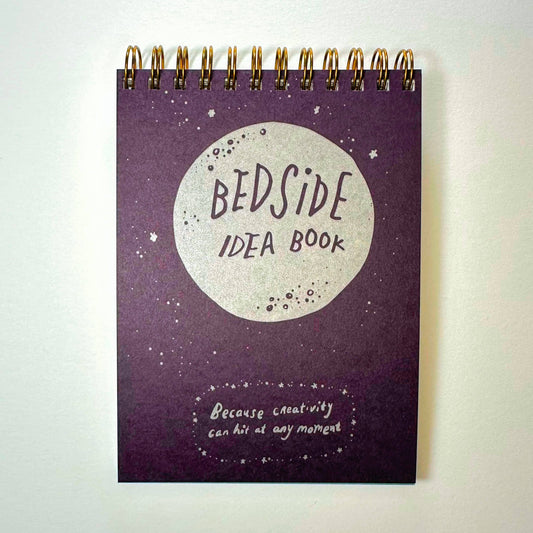 BEDSiDE
IDEA BOOK
Because creativity
can hit at any moment